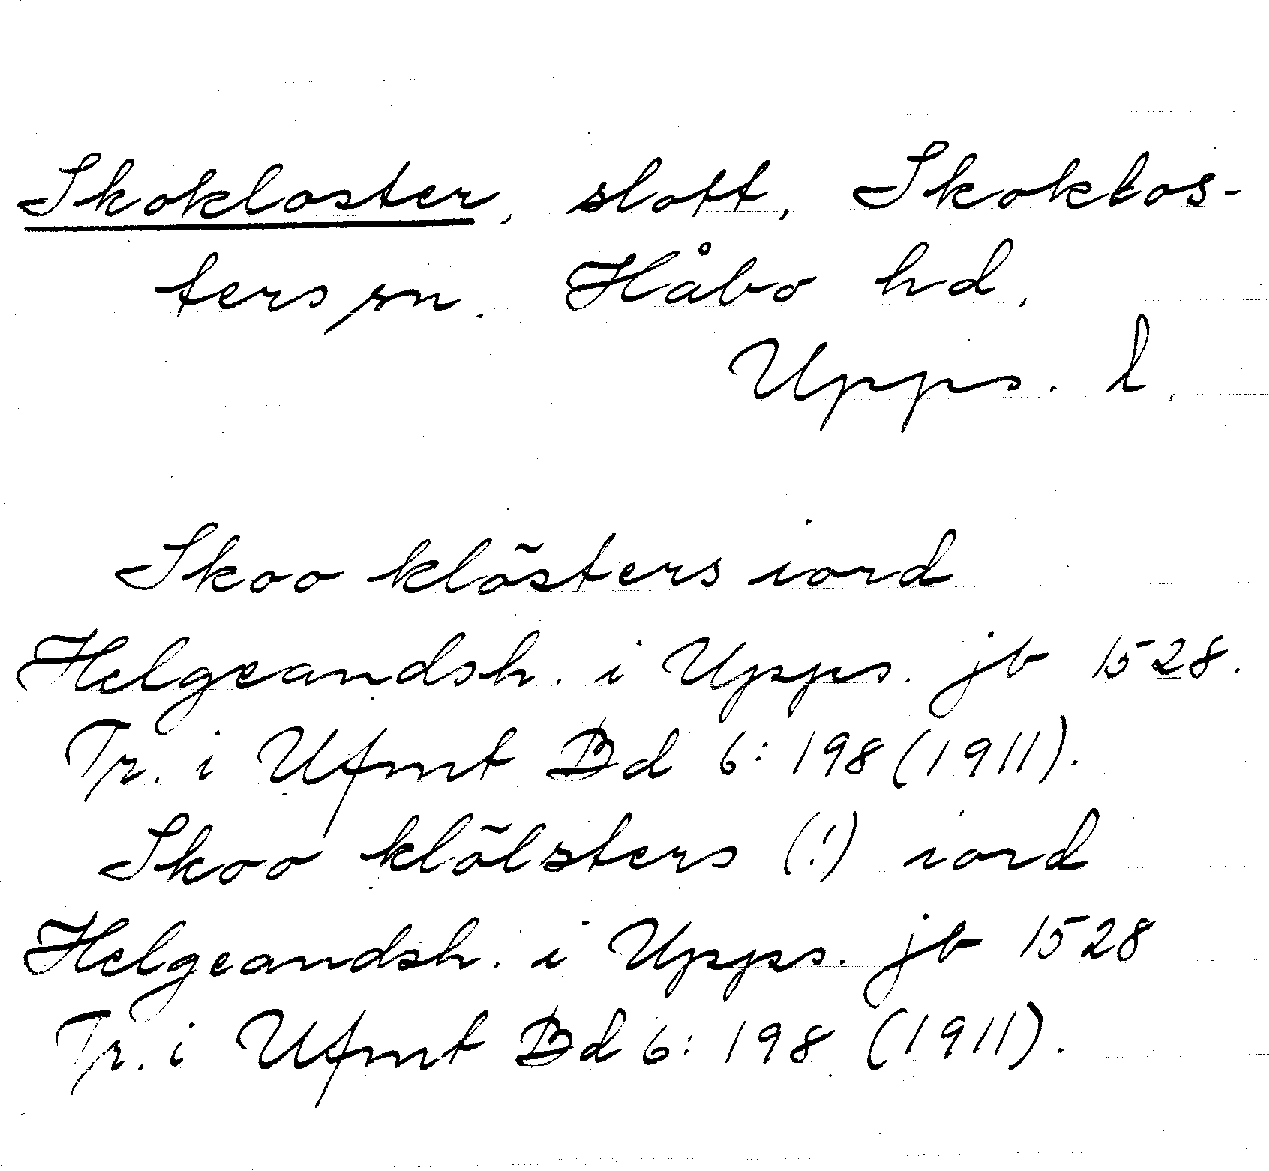 Skokloster, slott, Skoklos-
ters sn. Håbo hd.
Upps. l.
Skoo klõsters iord
Helgeandsh. i Upps. jb 1528.
Tr. i Ufmt Bd 6: 198 (1911).
Skoo klõlsters (!) iord
Helgeandsh. i Upps. jb 1528
Tr. i Ufmt Bd 6: 198 (1911).